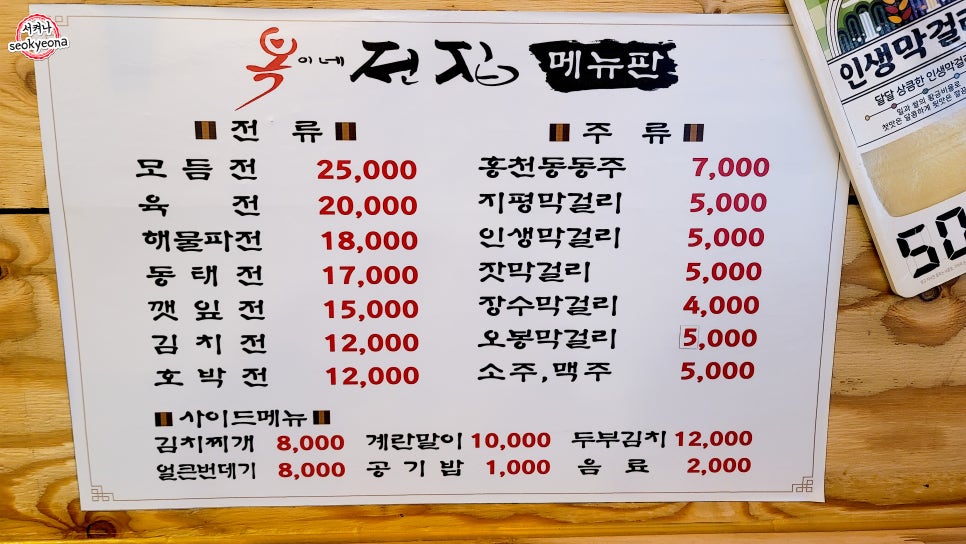 서켜나
seokyeona
옥이네 전집 메뉴판
전 류
모 듬 전 25,000
육 전 20,000
해물파전 18,000
동 태 전 17,000
깻 잎 전 15,000
김 치 전 12,000
호 박 전 12,000
주 류
홍천동동주 7,000
지평막걸리 5,000
인생막걸리 5,000
잣막걸리 5,000
장수막걸리 4,000
오봉막걸리 5,000
소주,맥주 5,000
사이드메뉴
김치찌개 8,000 계란말이 10,000 두부김치 12,000
얼큰번데기 8,000 공 기 밥 1,000 음 료 2,000
인생막걸리
달달 상큼한 인생막걸리
밀과 쌀의 황금비율로
첫맛은 달콤하게 뒷맛은 깔끔
50